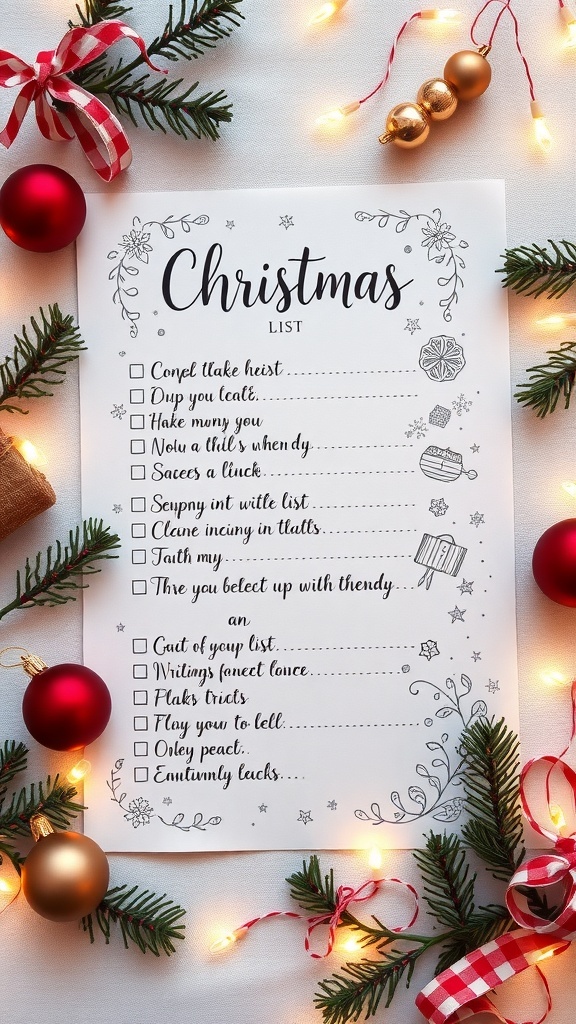 Christmas
LIST
Confel tlake heist
Dup you lcatc.
Hake muny you
Nolu a thil's when dy
Sacces a linck
Seupny int witle list
Cleine inciwng in tlalls.
Taith my
Thre you belect up with thendy
an
Gact of youp list.
Writings fanect lonce
Plaks tricts
Flay your to bell.
Onley peact..
Enntiumly lucks....